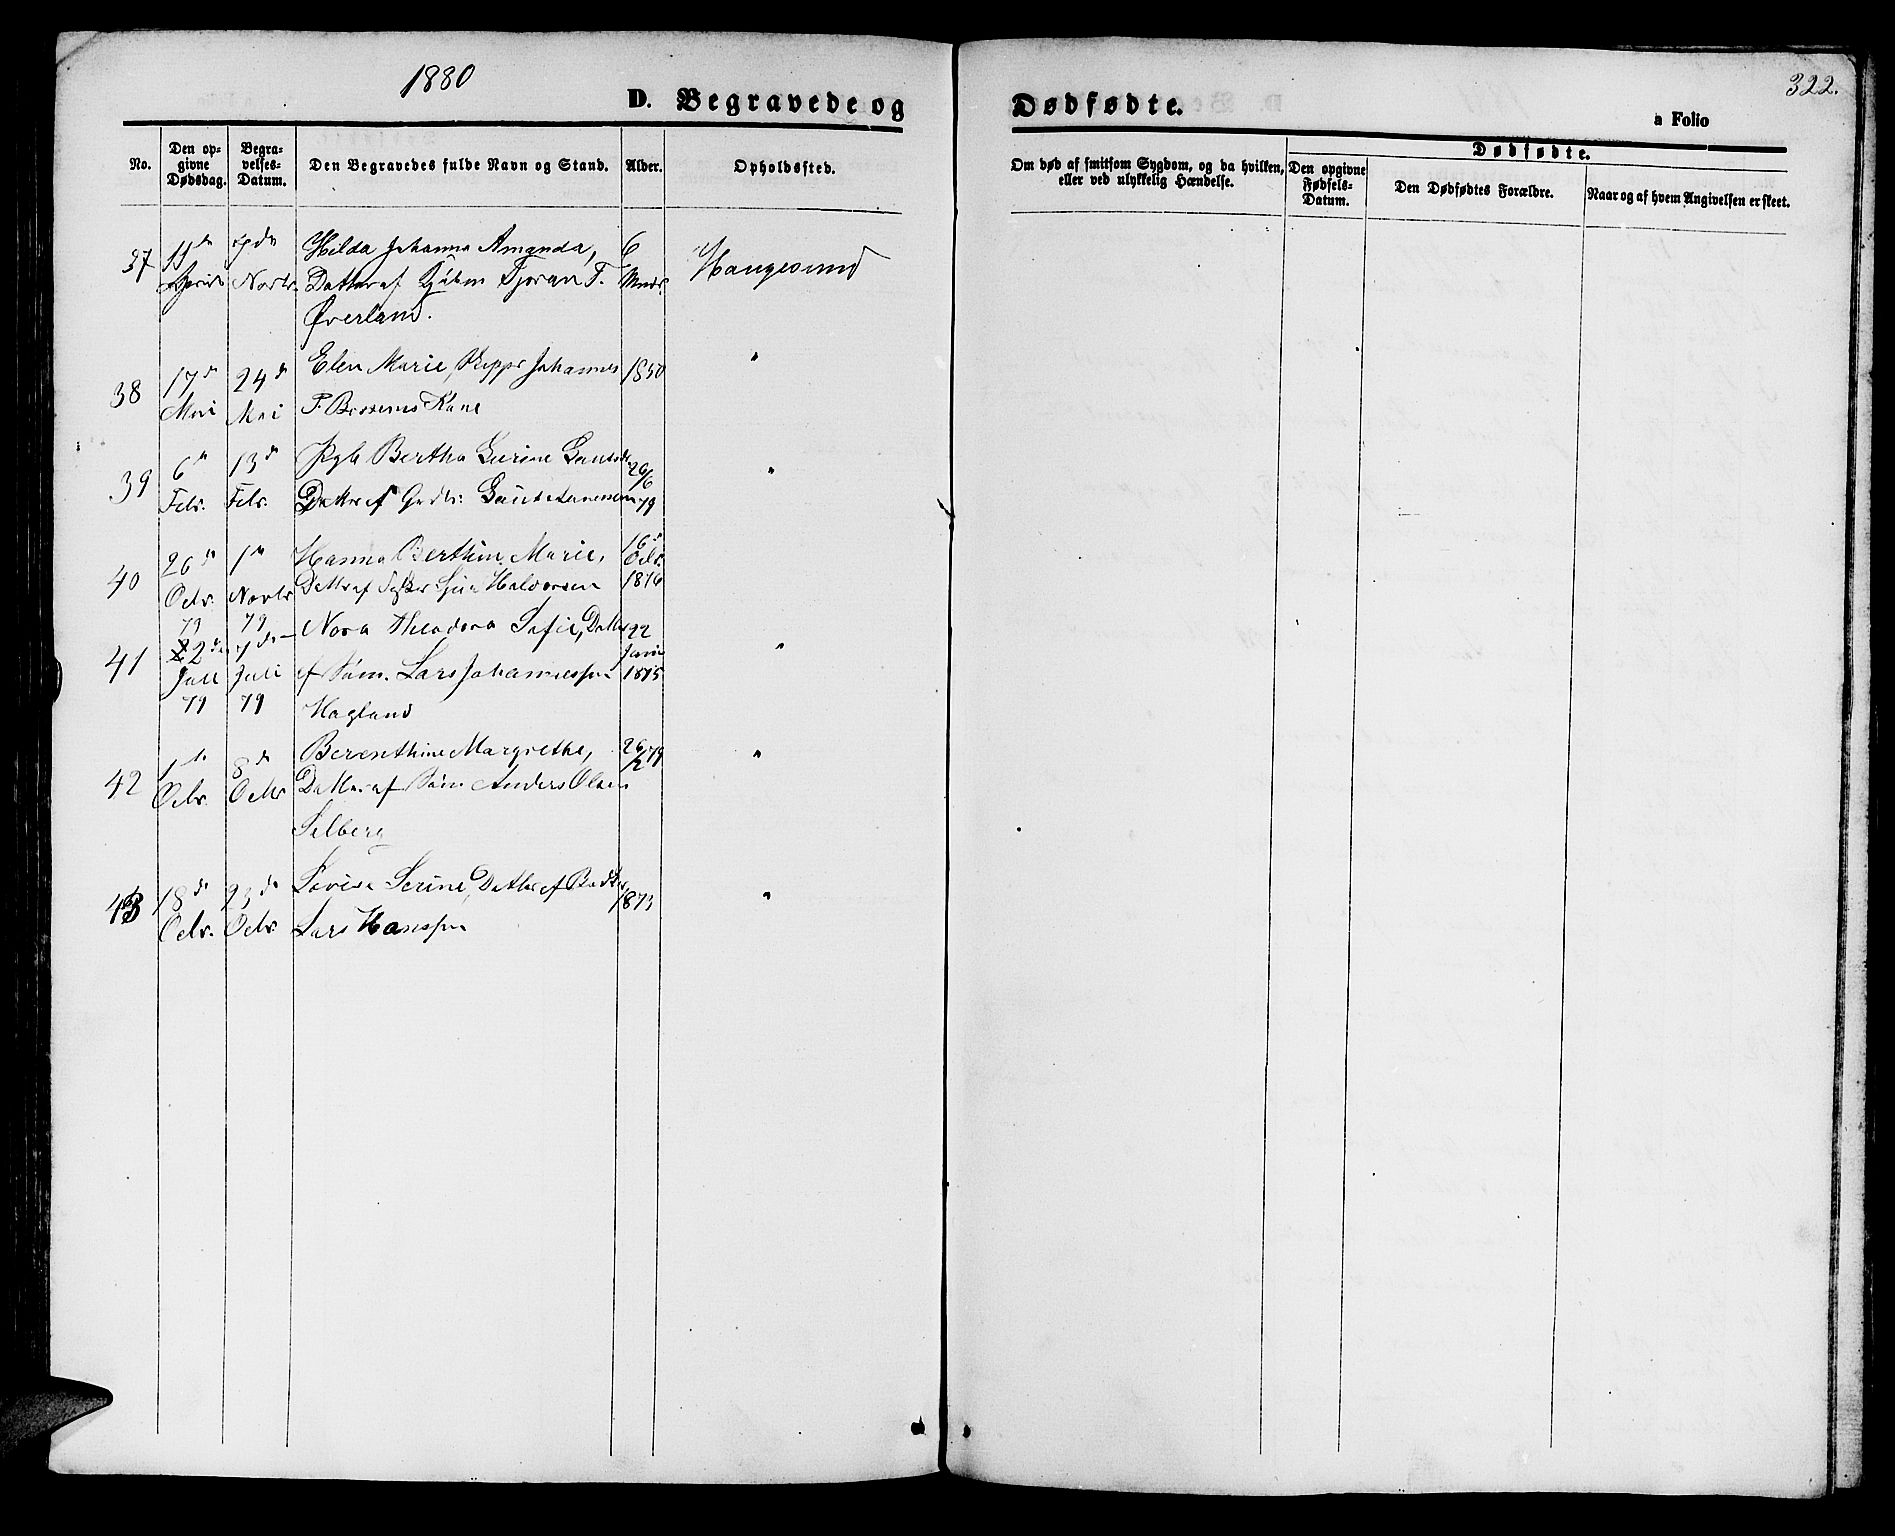 1880
D. Begravede og
Dødfødte.
322.
a Folio
No.
Den op-
givne
Dødsdag.
Begra-
velses-
Datum.
Den Begravedes fulde Navn og Stand.
Alder.
Opholdssted.
Om død af smitsom Sygdom, og da hvilken,
eller ved ulykkelig Hændelse.
Dødfødte.
Den opgivne
Fødsels-
Datum.
Den Dødfødtes Forældre.
Naar og af hvem Angivelsen er skeet.
37
Novbr.
Hilda Johanna Amanda,
Datter af Kjøbm Tjoran T.
Øverland.
6
Mndr.
Haugesund
38
17de
Mai
24de
Mai
Elen Marie, Johannes
P. Kone
1850
"
39
6te
Febr.
13de
Febr.
Bertha Gurine
Datter af
26/6
79
"
40
26de
Octbr.
79
1ste
Novbr
79
Hanna Berthine Marie,
Datter af Halvorsen
16de
Octbr.
1876
41
22de
Juli
79
7de
Juli
79
Nora Theodora Sofie, Datter
af Søm. Lars Johannessen
Hagland
22
Juni
1875
"
42
1ste
Octbr.
8de
Octbr
Berenthine Margrethe,
Datter af Søm Anders Olsen
Selberg
26/2 79
"
43
18de
Octbr.
23de
Octbr
Lovise Serine, Datter af
Lars Hanssen
1873
"